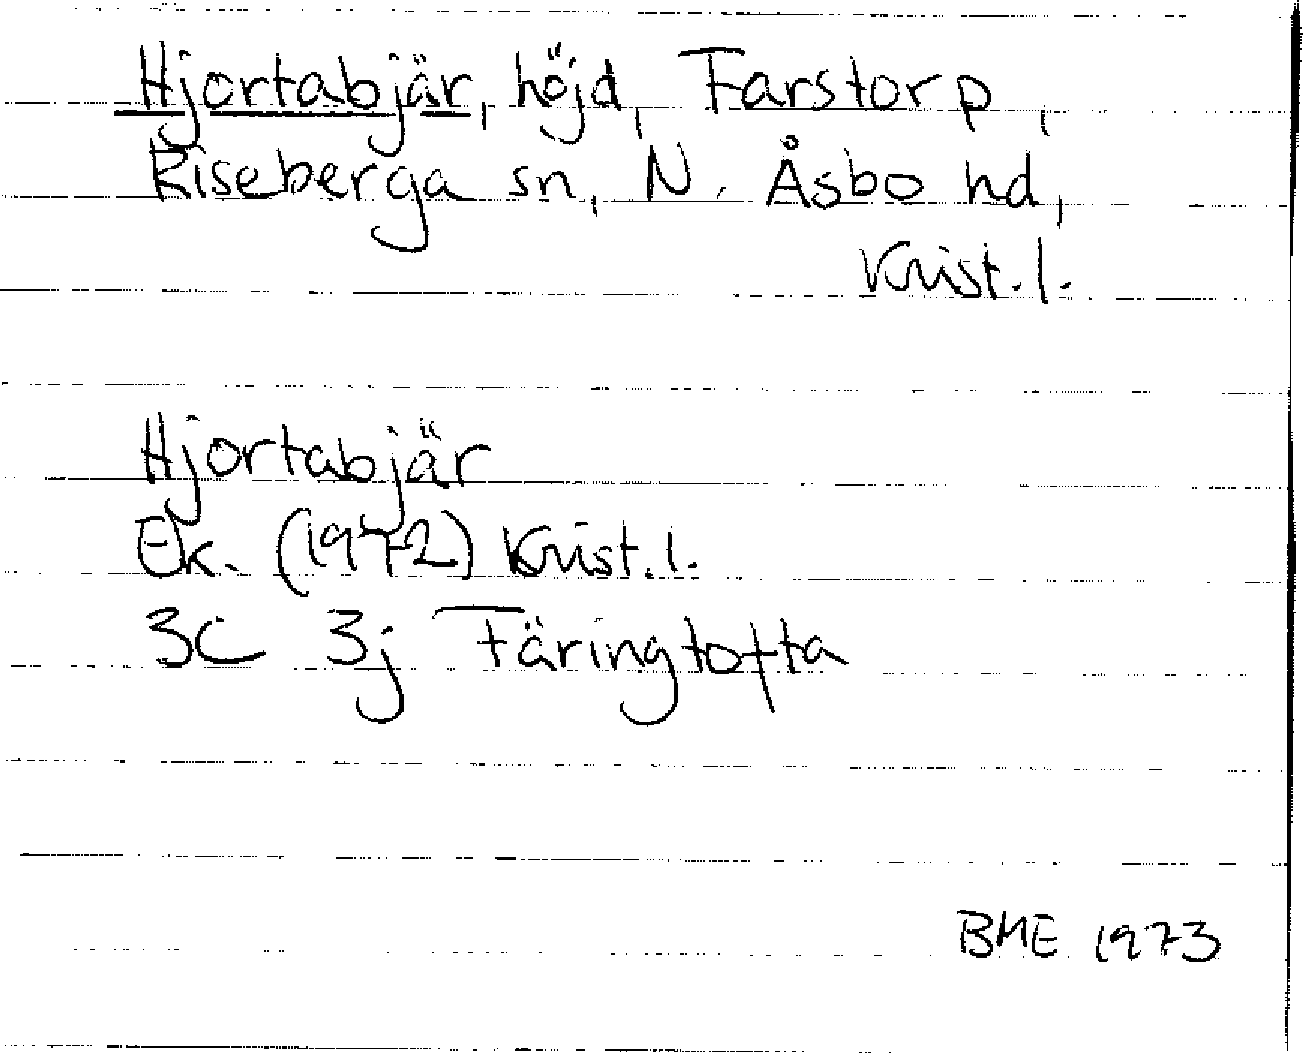 Hjortabjär, höjd, Farstorp,
Riseberga sn, N. Åsbo hd,
Krist. l.
Hjortabjär
Ek. (1972) Krist. l.
3C 3j Färingtofta
BME 1973